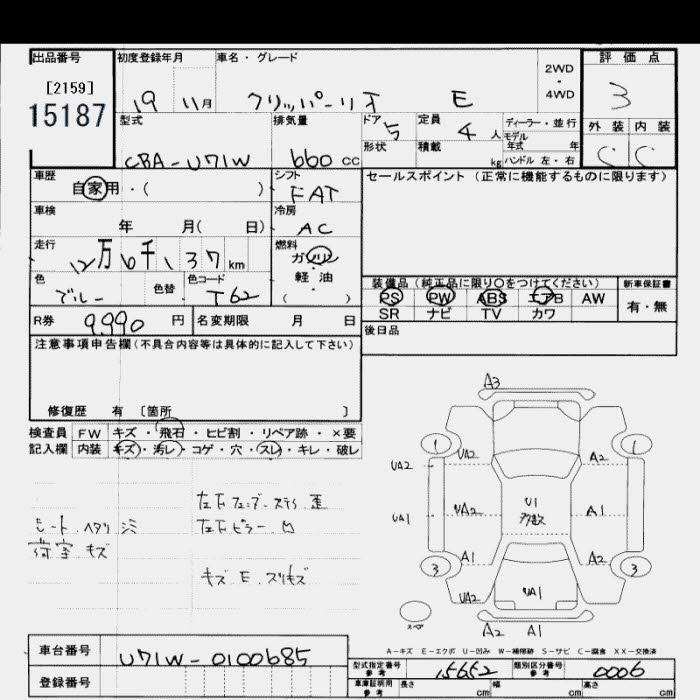 出品番号 初度登録年月 車名・グレード 2WD・4WD 評価点
[2159]
15187
19 11月 クリッパーリオ E 3
型式 排気量 ドア 5 定員 4人 ディーラー・並行 外装 内装
モデル年式 年
CBA-U71W 660 CC 形状 積載 kg ハンドル 左・右 C C
車歴 自家用・( ) シフト FAT セールスポイント (正常に機能するものに限ります)
車検 年 月( 日) 冷房 AC
走行 12万6千137km 燃料 ガソリン
軽油
( )
色 ブルー 色替 色コード T62
装備品(純正品に限り〇をつけてください) 新車保証書
PS PW ABS エアB AW 有・無
SR ナビ TV カワ
R券 9,990円 名変期限 月 日 後日品
注意事項申告欄(不具合内容等は具体的に記入して下さい)
修復歴 有 〔箇所 〕
検査員 FW キズ・飛石・ヒビ割・リペア跡・×要
記入欄 内装 キズ・汚レ・コゲ・穴・スレ・キレ・破レ
左右フェンダーステー歪
シート ヘタリ シミ 左右ピラー凹
荷室 キズ
A3
1 1
UA2 UA2 A2
UA1 UA2 U1 多数 A1
A1 A2
3 3
UA2 UA1
スペア
A2 A1
A-キズ E-エクボ U-凹み W-補修跡 S-サビ C-腐食 XX-交換済
車台番号 U71W-0100685
型式指定番号 参考 15652 類別区分番号 参考 0006
登録番号
車庫証明用 参考 長さ cm 幅 cm 高さ cm